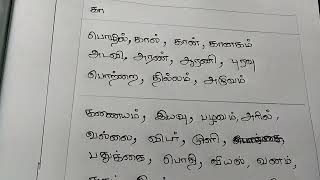 கா
பொழில், கால், கான், கானகம்
அடவி, அரண், ஆரணி, புறவு
பொற்றை, தில்லம், அழுவம்
கணையம், இயவு, பழவம், அரில்
வல்லை, விடர், முளி,
பதுக்கை, பொதி, வியல், வனம்,